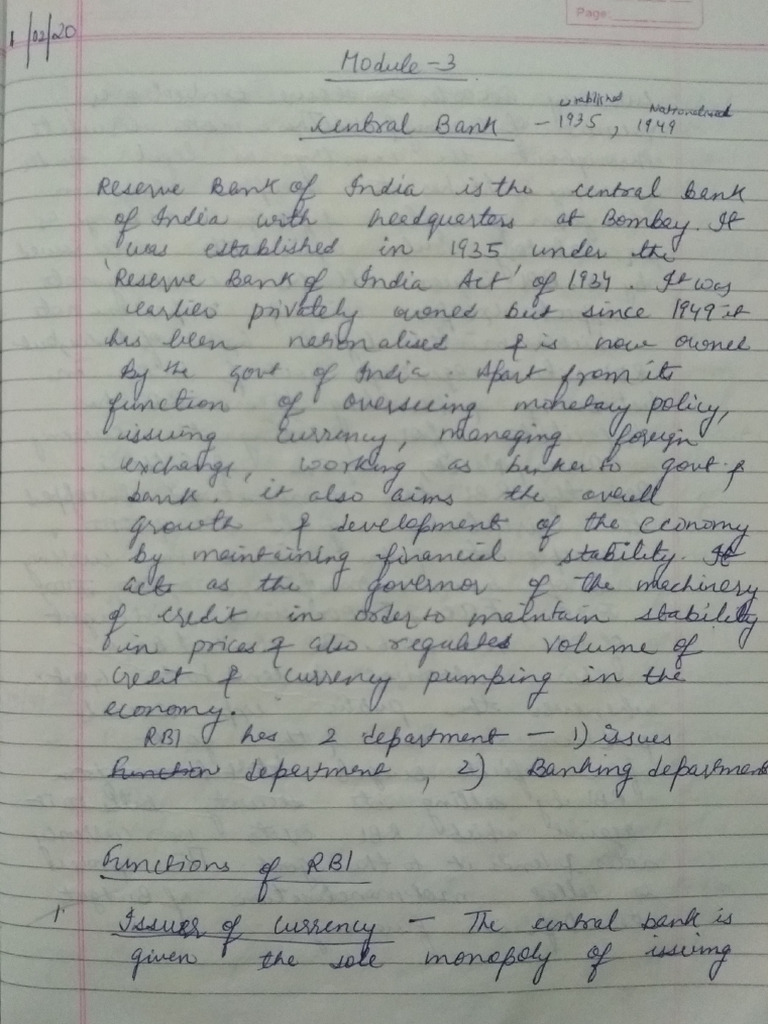 Page:
1/02/20
Module - 3
Central Bank - 1935, 1949
established Nationalised
Reserve Bank of India is the central bank
of India with headquarters at Bombay. It
was established in 1935 under the
'Reserve Bank of India Act' of 1934. It was
earlier privately owned but since 1949 it
has been nationalised & is now owned
by the govt of India. Apart from its
function of overseeing monetary policy,
issuing currency, managing foreign
exchange, working as banker to govt &
bank. it also aims the overall
growth & development of the economy
by maintaining financial stability. It
acts as the governor of the machinery
of credit in order to maintain stability
in prices & also regulates volume of
credit & currency pumping in the
economy.
RBI has 2 department - 1) issues
function department, 2) Banking department
Functions of RBI
1. Issuer of currency - The central bank is
given the sole monopoly of issuing